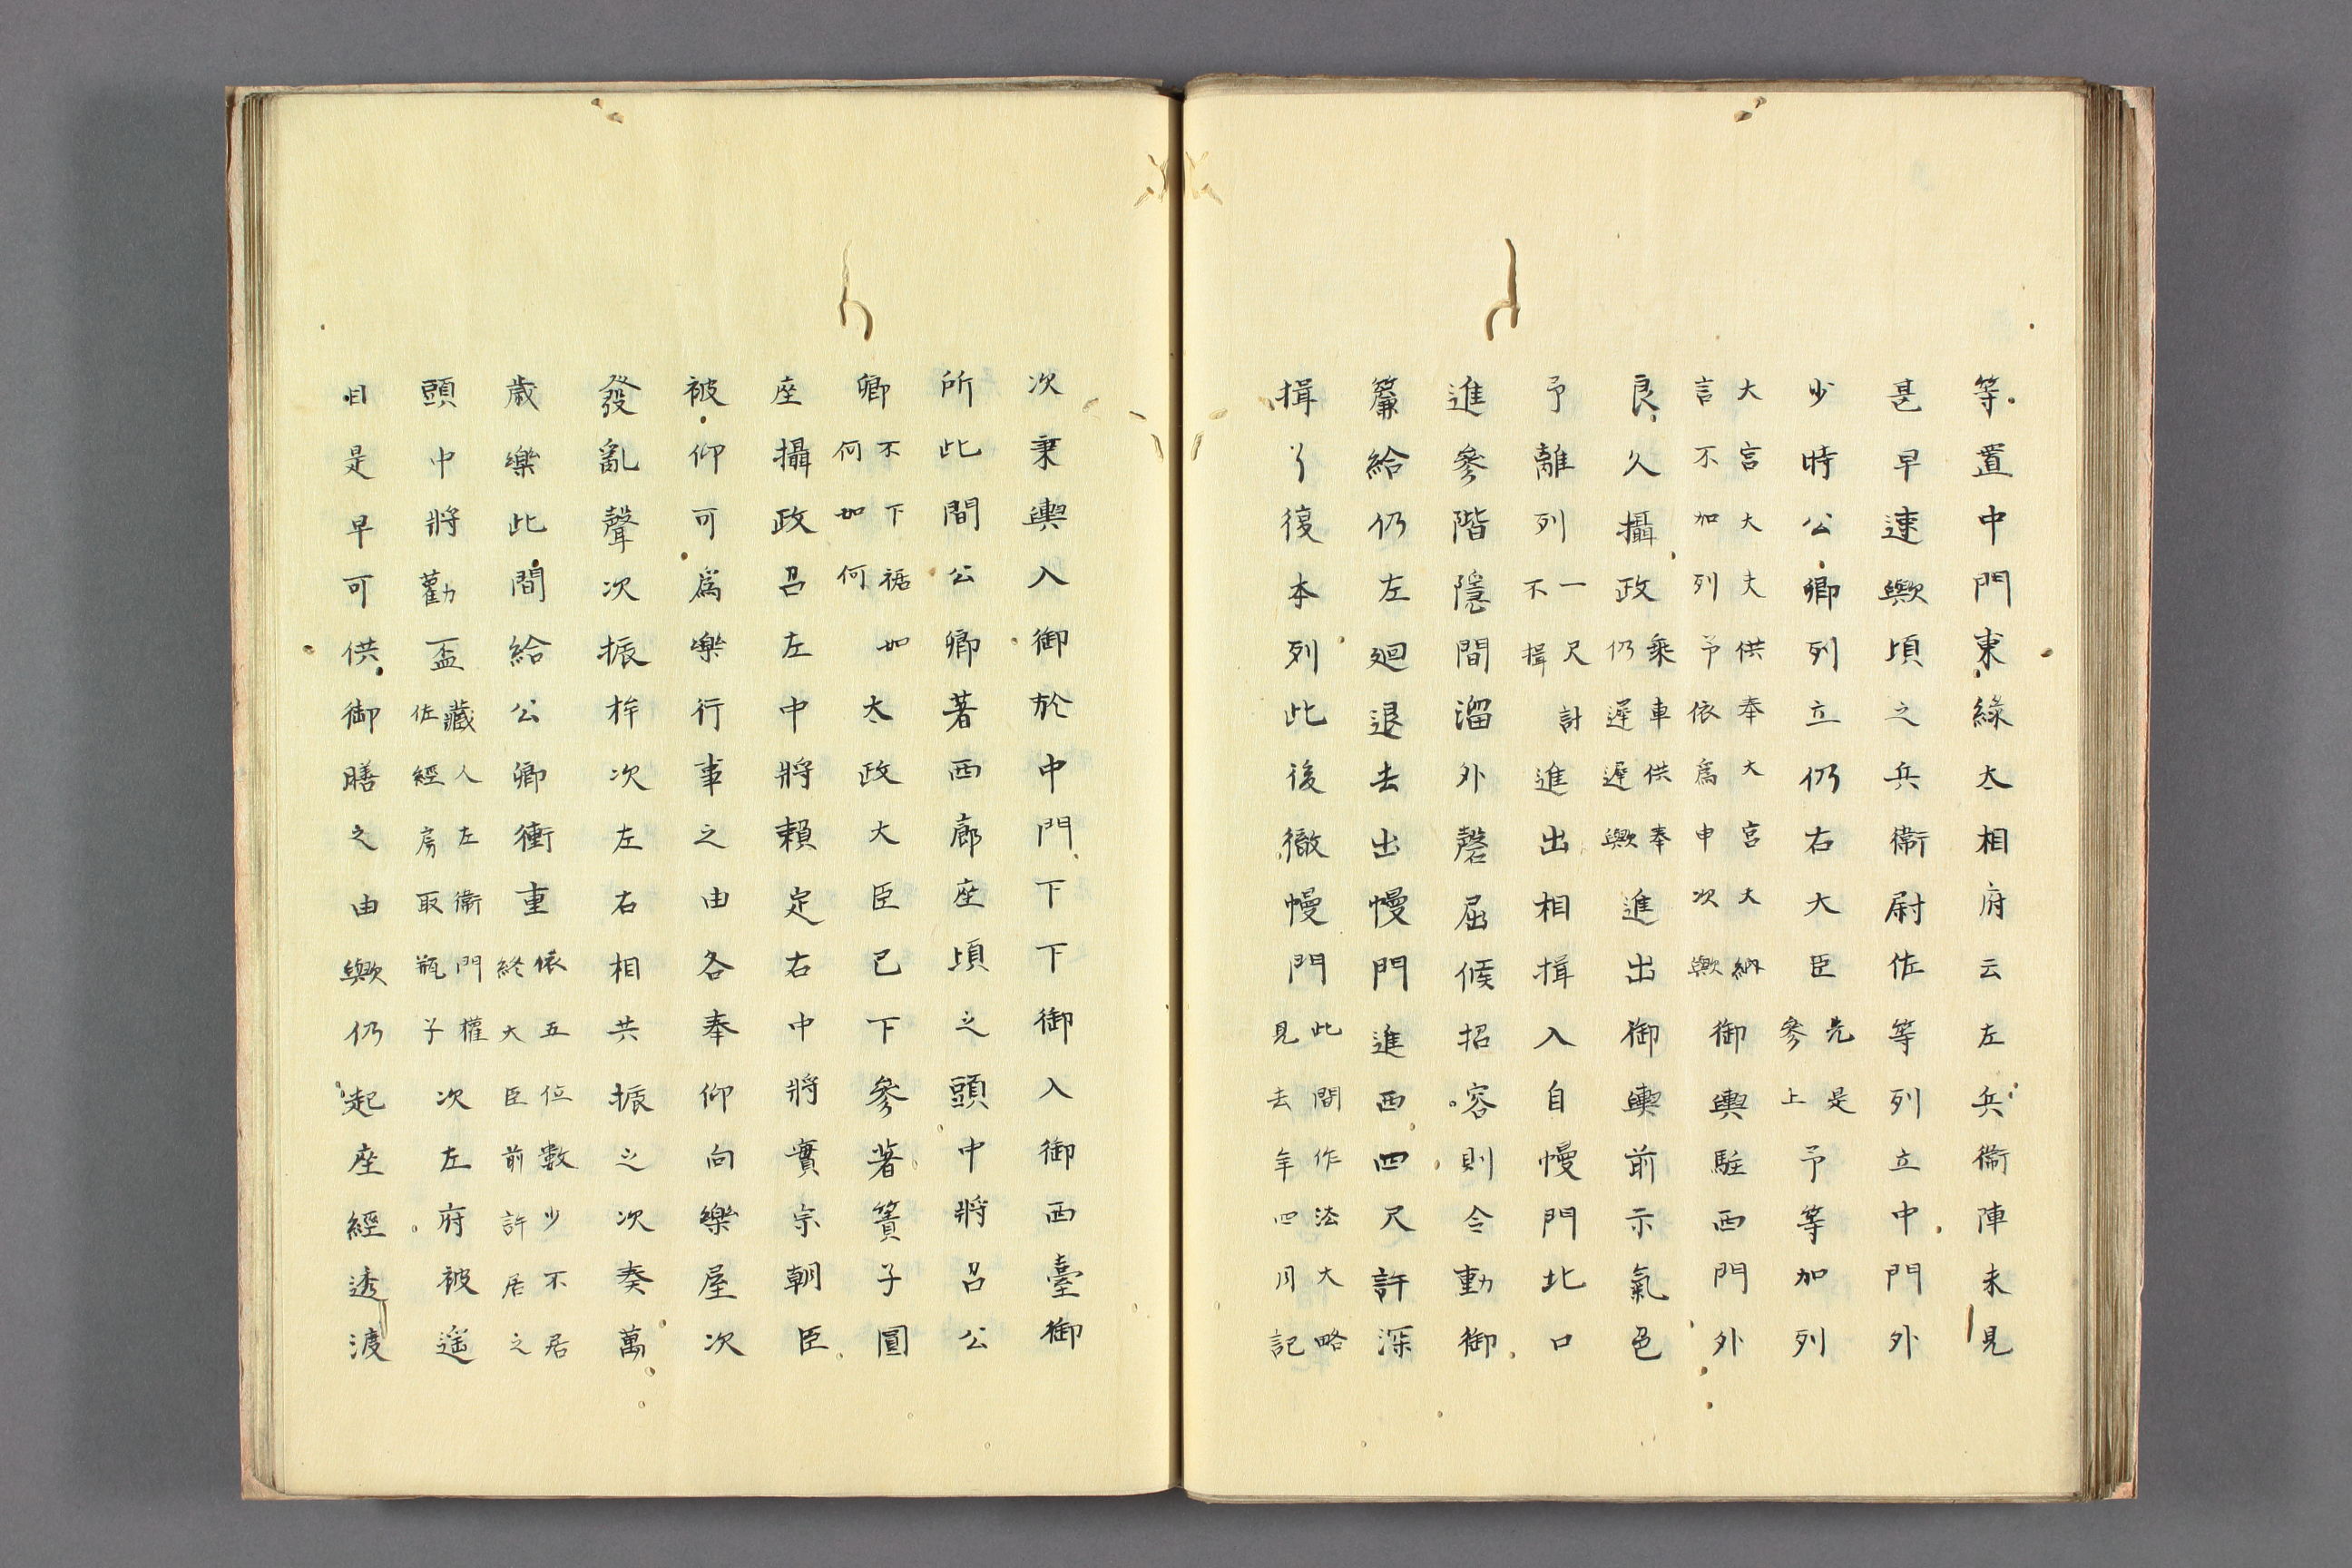 等置中門東緣太相府云左兵衞陣未見
甚早速歟頃之兵衞尉佐等列立中門外
少時公卿列立仍右大臣先是參上予等加列
大宮大夫供奉大宮大納言不加列予依爲申次歟御輿駐西門外
良久攝政乘車供奉仍遲遲歟進出御輿前示氣色
予離列一尺計不揖進出相揖入自幔門北口
進參階隱間溜外磬屈候招容則令動御
簾給仍左廻退去出幔門進西四尺許深
揖了復本列此後徹幔門此間作法大略見去年四月記
次乘輿入御於中門下下御入御西臺御
所此間公卿著西廊座頃之頭中將召公
卿不下裾如何如何太政大臣已下參著簀子圓
座攝政召左中將賴定右中將實宗朝臣
被仰可爲樂行事之由各奉仰向樂屋次
發亂聲次振桙次左右相共振之次奏萬
歲樂此間給公卿衝重依五位數少不居終大臣前許居之
頭中將勸盃藏人左衞門權佐經房取瓶子次左府被遥
目是早可供御膳之由歟仍起座經透渡